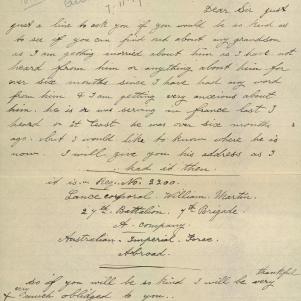 7.11.17
Dear Sir just
just a line to ask you if you would be so kind as
to see if you can find out about my grandson
as I am getting worried about him as I have not
heard from him or anything about him for
over six months since I have had any word
from him & I am getting very anxious about
him. he is or was serving in france last I
heard or at least he was over six months
ago. but I would like to know where he is
now I will give you his address as I
had it then.
it is - Reg. No. 2200.
Lance corporal. William. Martin.
27th. Battalion. 7th Brigade
A. Company
Australian. Imperial. Force.
Abroad.
so if you will be so kind I will be very thankful
& very much obliged to you..